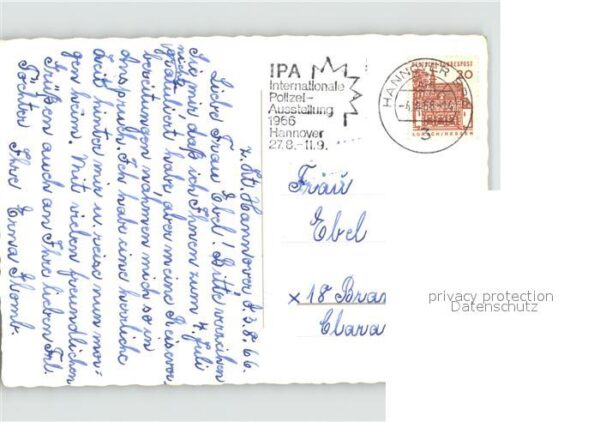 z. Zt. Hannover d. 3.8.66.
Liebe Frau Ebel! Bitte verzeihen
Sie mir daß ich Ihnen zum 4. Juli
nicht
gratuliert habe, aber meine Reisevor-
bereitungen nahmen mich so in
Anspruch. Ich habe eine herrliche
Zeit hinter mir u. reise nun mor-
gen heim. Mit vielen freundlichen
Grüßen auch an Ihre lieben Frl.
Tochter Ihre Erna
IPA
Internationale
Polizei-
Ausstellung
1966
Hannover
27.8.-11.9.
HANNOVER
3
DEUTSCHE BUNDESPOST
20
LORSCH/HESSEN
Frau
Ebel
x 18 Bran
Clara
privacy protection
Datenschutz